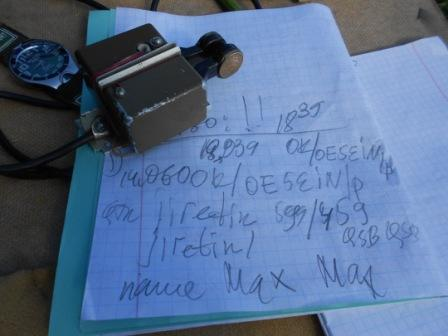 !! 18³⁵
18,939 OK/OE5EIN/p
14,060 OK/OE5EIN/p
QTH Jiretin 599/459
Jiretin/ QSB QSB
name Max Max